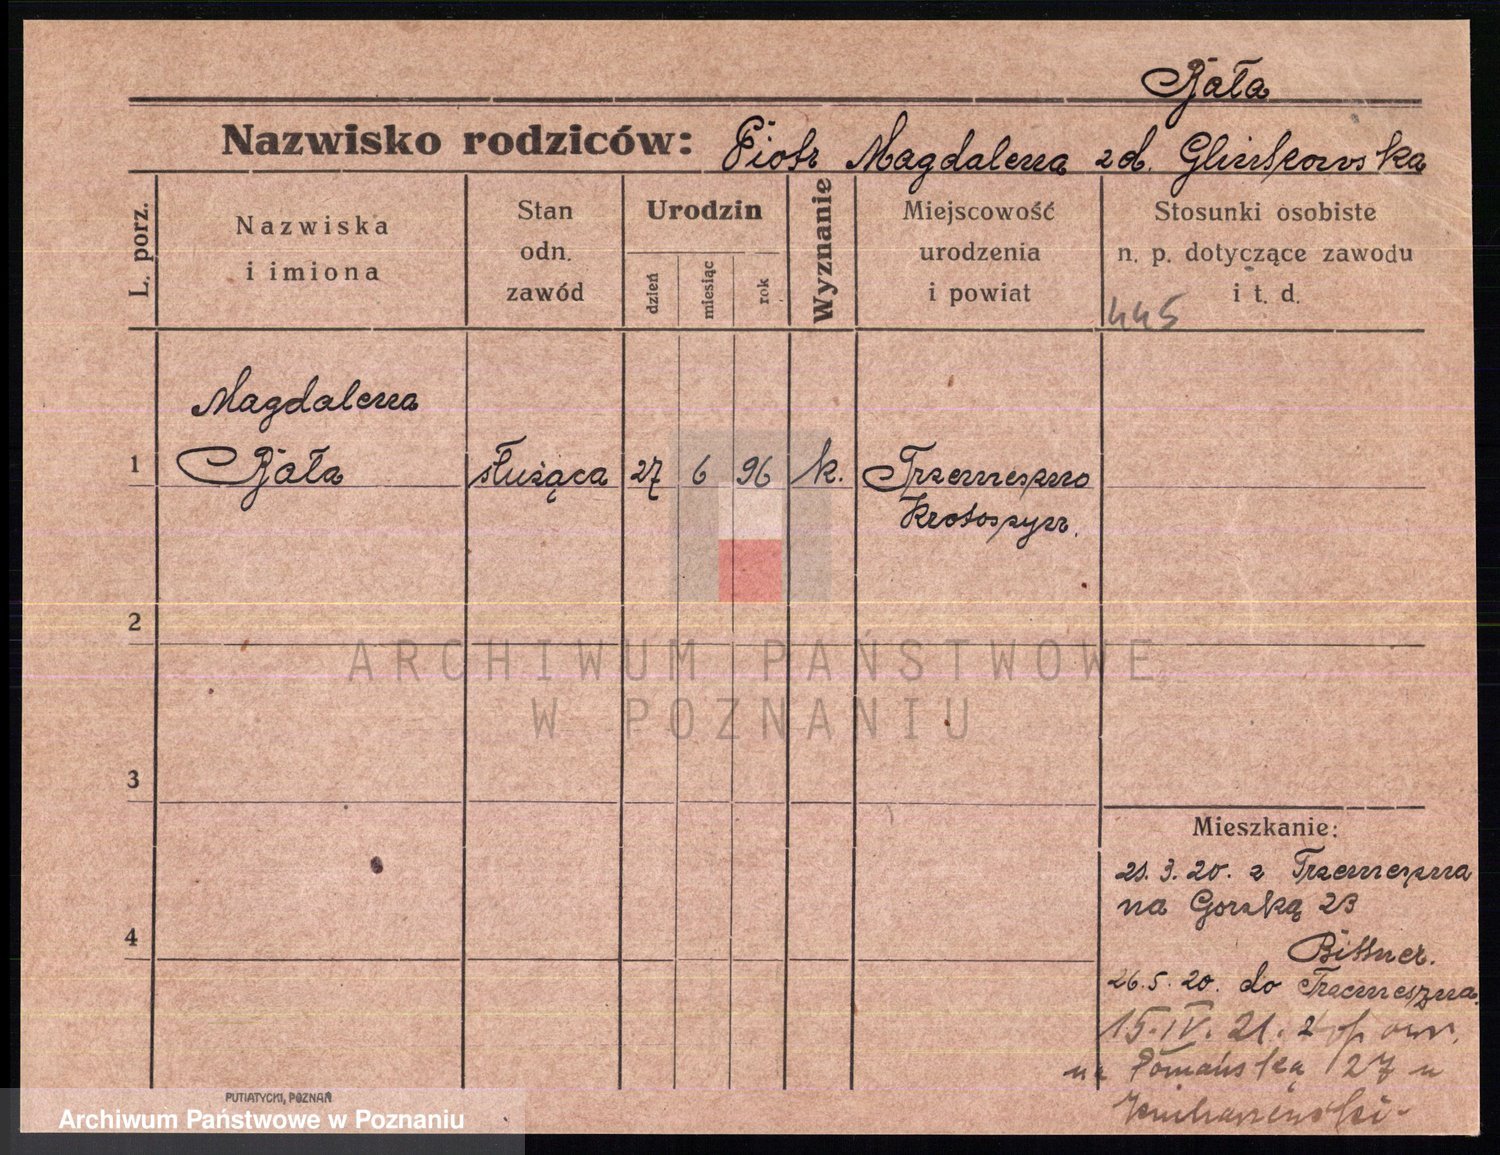 Bała
Nazwisko rodziców: Piotr Magdalena zd. Glinkowska
L. porz.
Nazwiska
i imiona
Stan
odn.
zawód
Urodzin
dzień
miesiąc
rok
Wyznanie
Miejscowość
urodzenia
i powiat
Stosunki osobiste
n. p. dotyczące zawodu
i t. d.
445
Magdalena
1 Bała służąca 27 6 96 k. Trzemeszno
Krotoszyn.
2
3
4
Mieszkanie:
21.3.20. z Trzemeszna
na Gorską 23
Bittner.
26.5.20. do Trzemeszna.
15.IV.21. z
na 27 u
ARCHIWUM PAŃSTWOWE
W POZNANIU
PUTIATYCKI, POZNAŃ
Archiwum Państwowe w Poznaniu